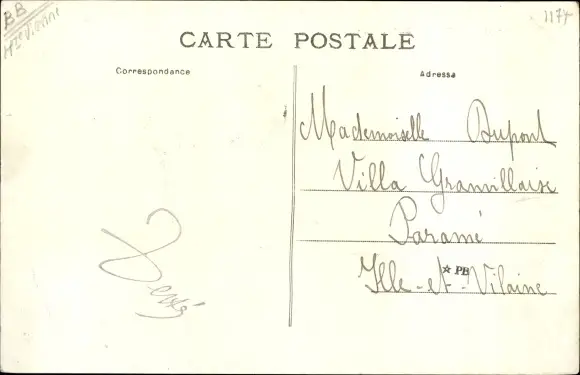 BB
Hte Vienne
1174
CARTE POSTALE
Correspondance
Adresse
Mademoiselle Dupont
Villa Granvillaise
Paramé
Ille-et-Vilaine
★ PB